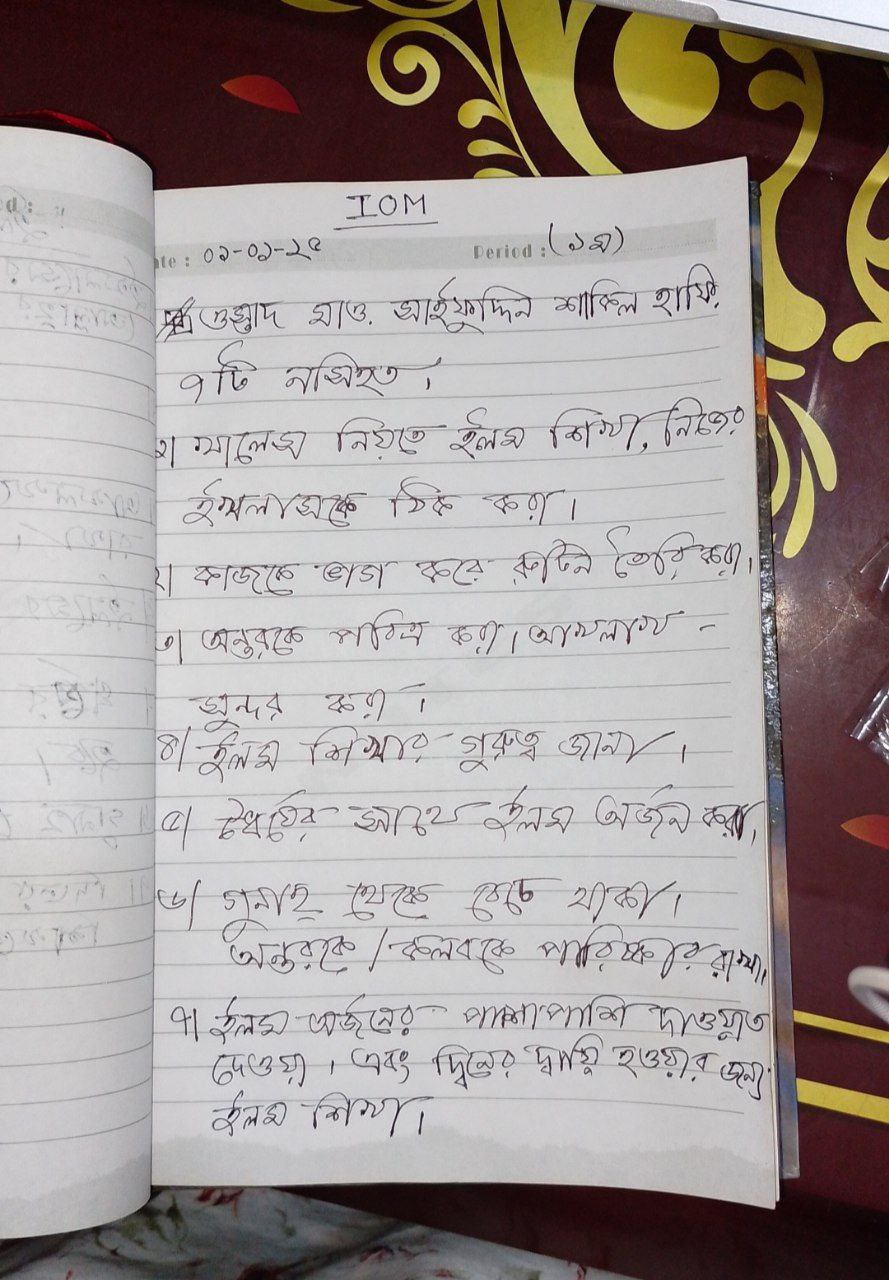 IOM
Date : ০১-০১-২৫ Period : (১ম)
ওস্তাদ মাও. সাইফুদ্দিন শাকিল হাফি.
৭টি নসিহত।
১। খালেস নিয়তে ইলম শিখা, নিজের
ইখলাসকে ঠিক করা।
২। কাজকে ভাগ করে রুটিন তৈরি করা।
৩। অন্তরকে পবিত্র করা। আখলাখ -
সুন্দর করা।
৪। ইলম শিখার গুরুত্ব জানা।
৫। ধৈর্যের সাথে ইলম অর্জন করা।
৬। গুনাহ্ থেকে বেচে থাকা।
অন্তরকে / কলবকে পারিষ্কার রাখা।
৭। ইলম অর্জনের পাশাপাশি দাওয়াত
দেওয়া। এবং দ্বিনের দ্বায়ি হওয়ার জন্য
ইলম শিখা।